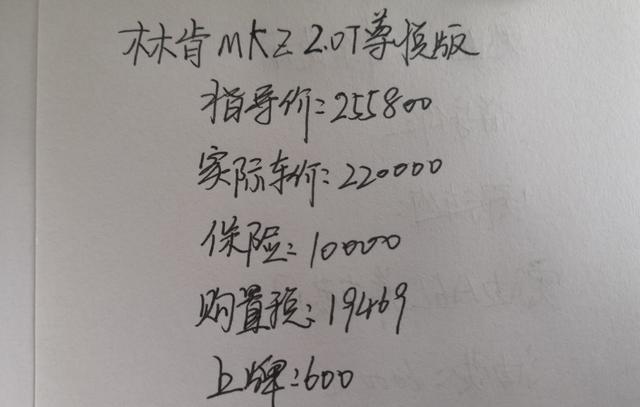 林肯MKZ 2.0T尊悦版
指导价:255800
实际车价:220000
保险:10000
购置税:19469
上牌:600